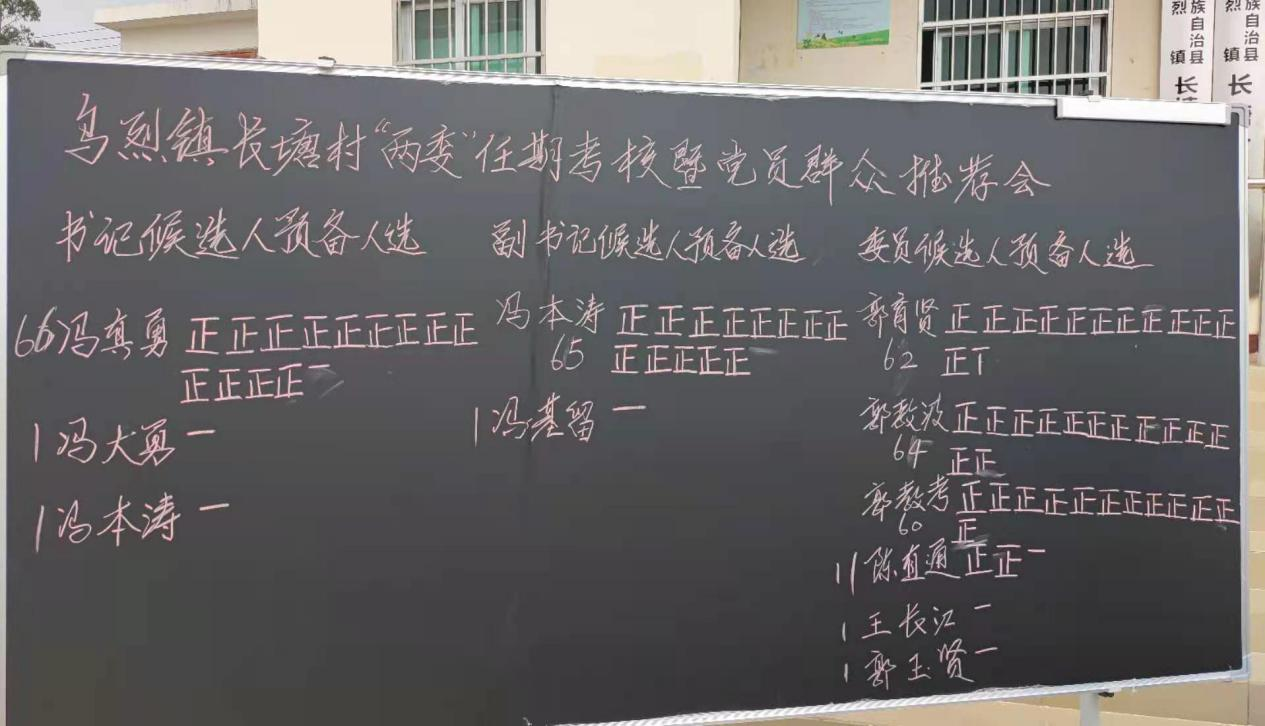 乌烈镇长塘村“两委”任期考核暨党员群众推荐会
书记候选人预备人选
66冯真勇 正正正正正正正正正
正正正正一
1冯大勇 一
1冯本涛 一
副书记候选人预备人选
冯本涛 正正正正正正正正
65 正正正正正
1冯基留 一
委员候选人预备人选
郭育贤 正正正正正正正正正正正
62 正丅
郭教波 正正正正正正正正正正正
64 正正
郭教考 正正正正正正正正正正正
60 正
11陈直通 正正一
1王长江 一
1郭玉贤 一
族自治县
烈镇长
族自治县
烈镇长